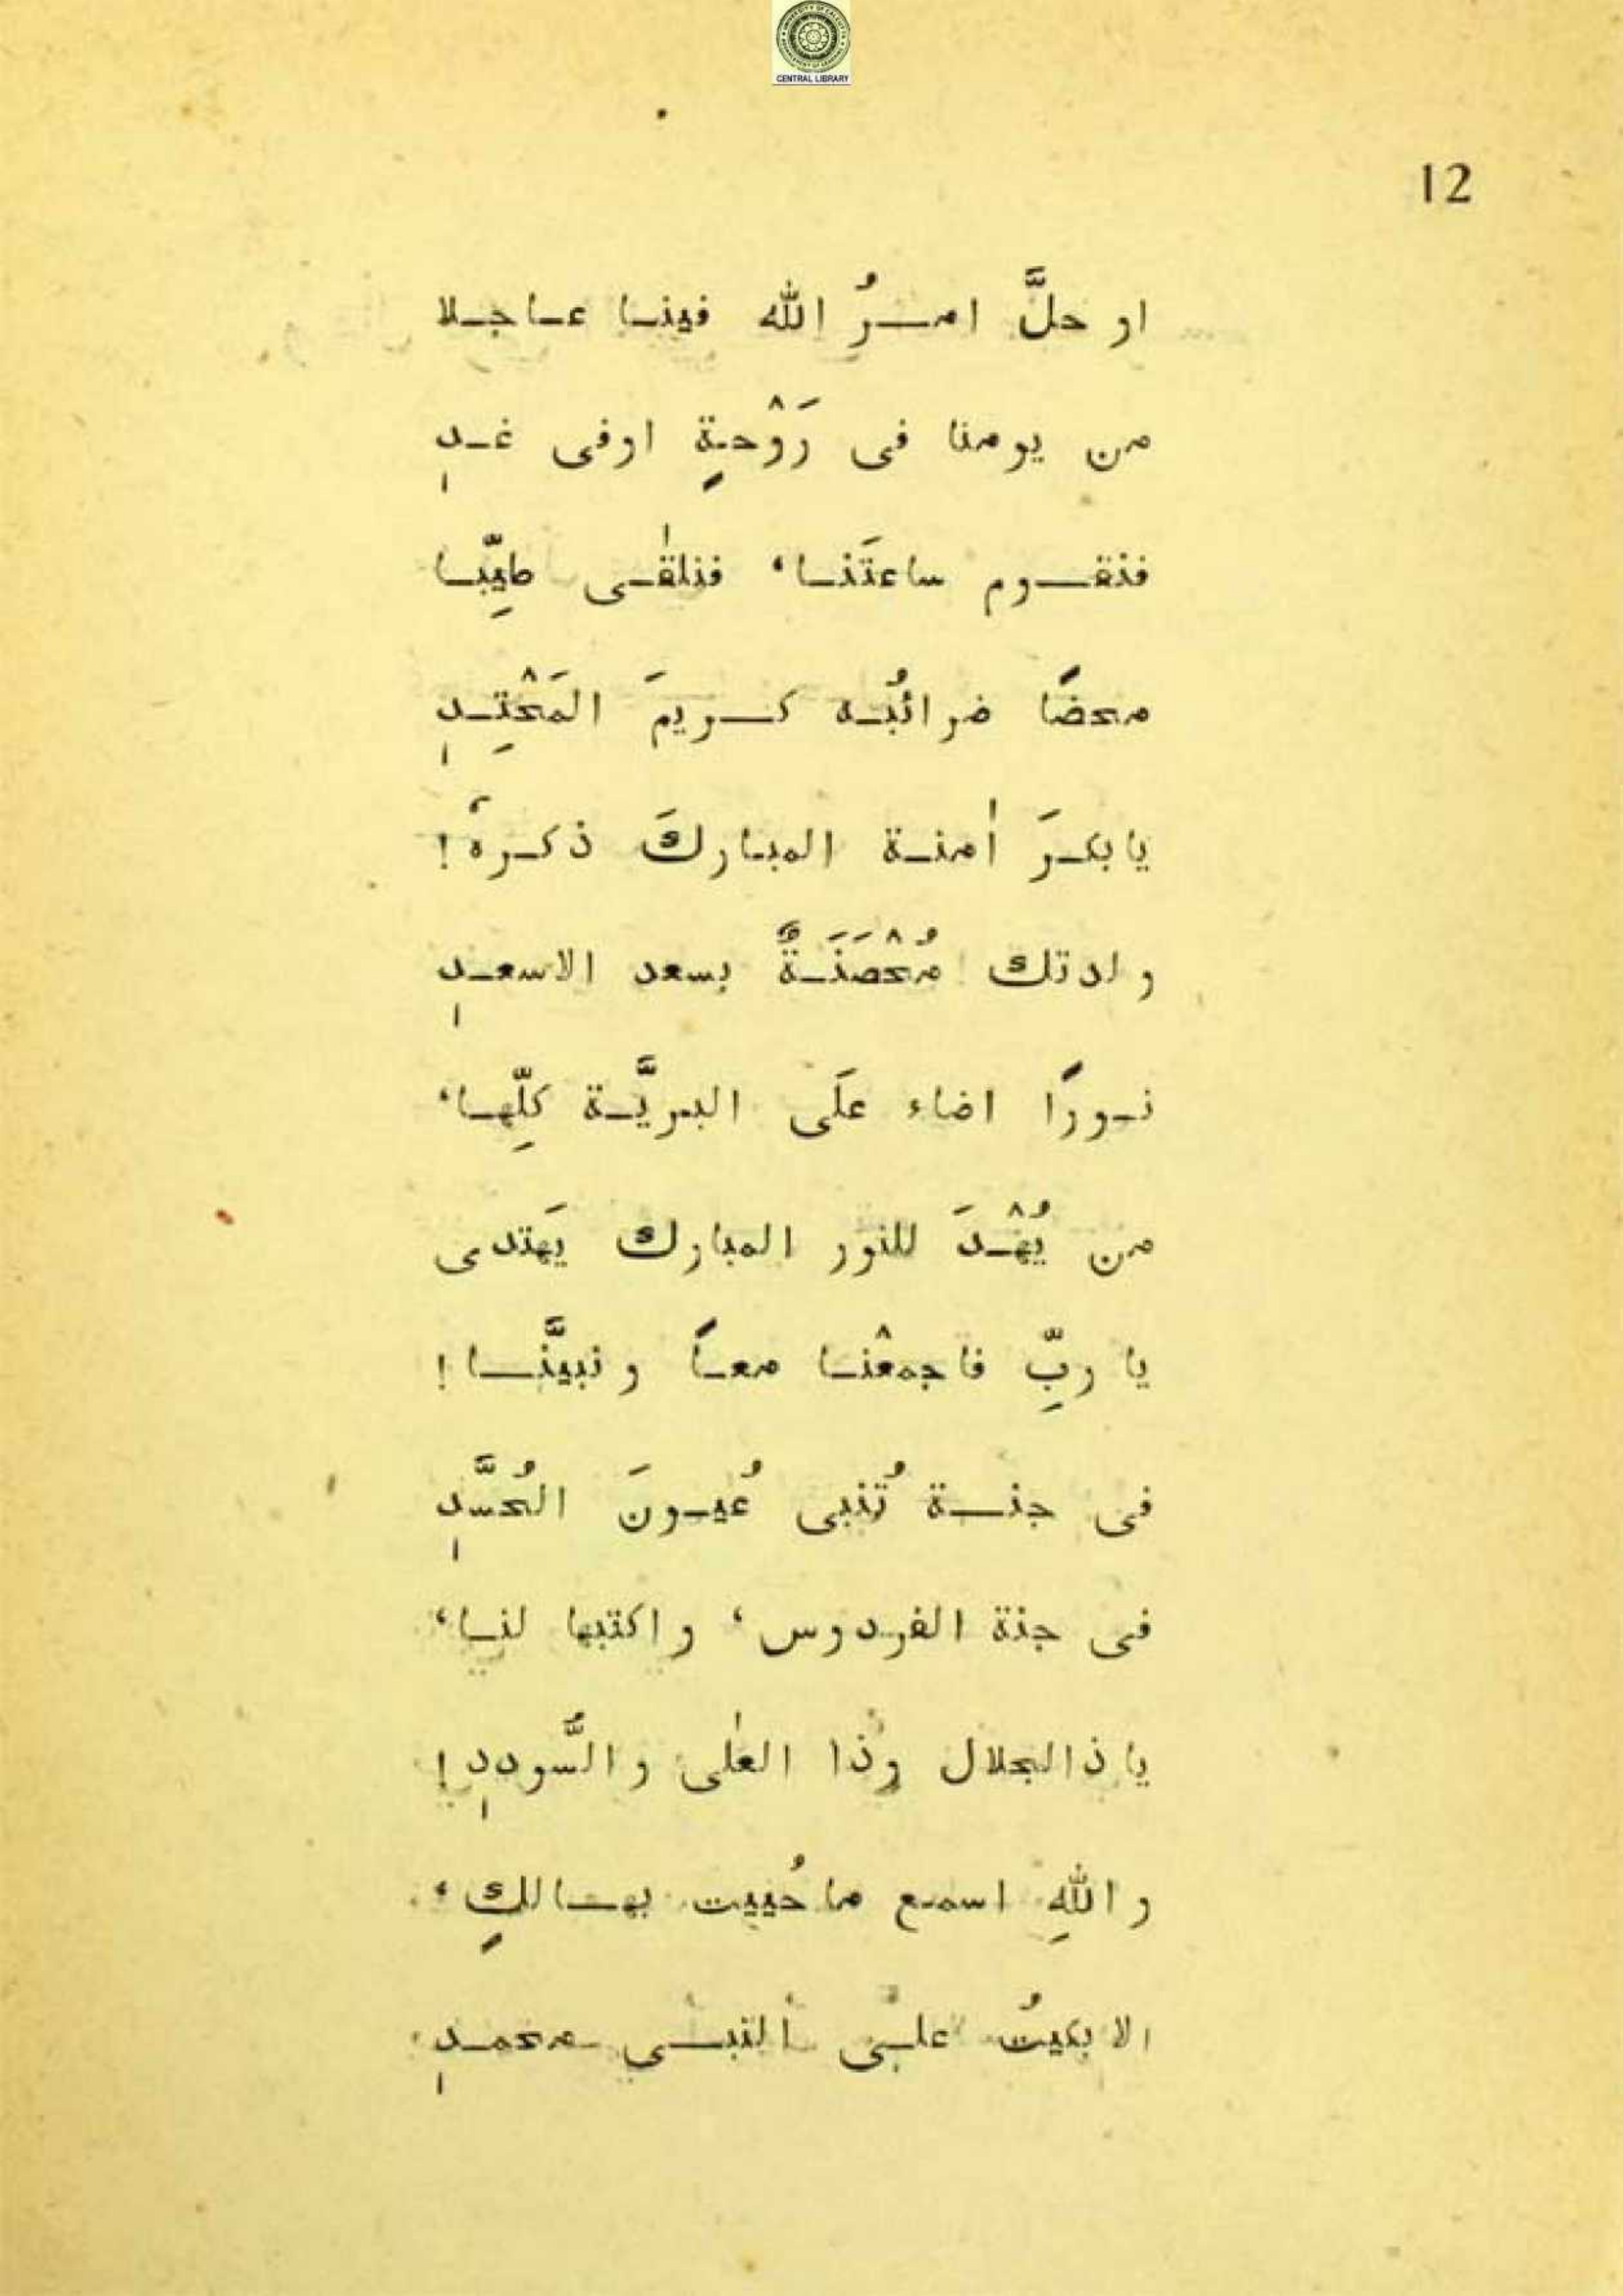 CENTRAL LIBRARY
12
او حلَّ امــرُ الله فينــا عــاجــلا
من يومنا فى رَوْحةٍ اوفى غــدٍ
فنقــوم ساعتَنــا، فنلقٰــى طيِّبــا
محضًا ضرائبُــه كــريمَ المَحْتِــدِ
يابكــرَ اٰمنــة المبــاركَ ذكــرهُ!
ولدتك مُحْصَنَــةٌ بسعد الاسعــدِ
نــورًا اضاء علَى البريَّــة كلِّهــا،
من يُهْــدَ للنور المبارك يَهتدى
يا ربِّ فاجمعْنــا معــاً ونبيَّنــا!
فى جنــة تُنبى عُيــونَ الحُسَّدِ
فى جنة الفردوس، واكتبها لنــا،
يا ذالجلال وذا العلٰى والسُّوددِ!
واللهِ اسمع ما حُييت بهــالكٍ،
الا بكيتُ علــى النبــى محمــدٍ